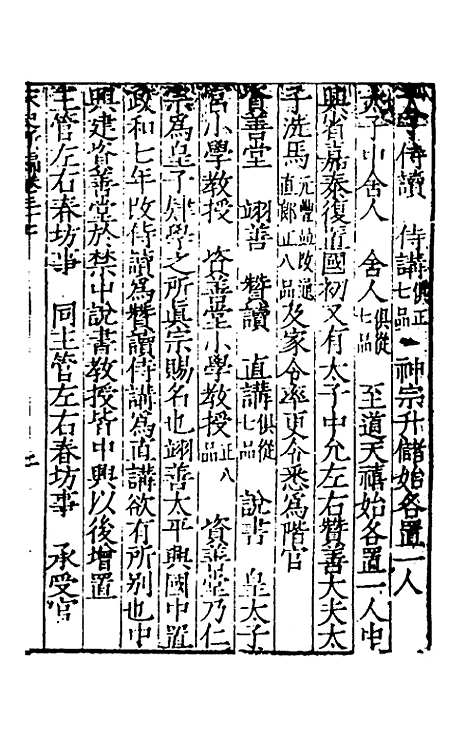 太子侍讀　侍講俱正七品　神宗升儲始各置一人
太子中舍人　舍人俱從七品　至道天禧始各置一人中
興省嘉泰復置國初又有太子中允左右贊善大夫太
子洗馬元豐並改通直郎正八品及家令率更令悉爲階官
資善堂　翊善　贊讀　直講俱從七品　說書　皇太子
宮小學教授　資善堂小學教授正八品　資善堂乃仁
宗爲皇子肄學之所眞宗賜名也翊善太平興國中置
政和七年改侍讀爲贊讀侍講爲直講欲有所別也中
興建資善堂於禁中說書教授皆中興以後增置
主管左右春坊事　同主管左右春坊事　承受官